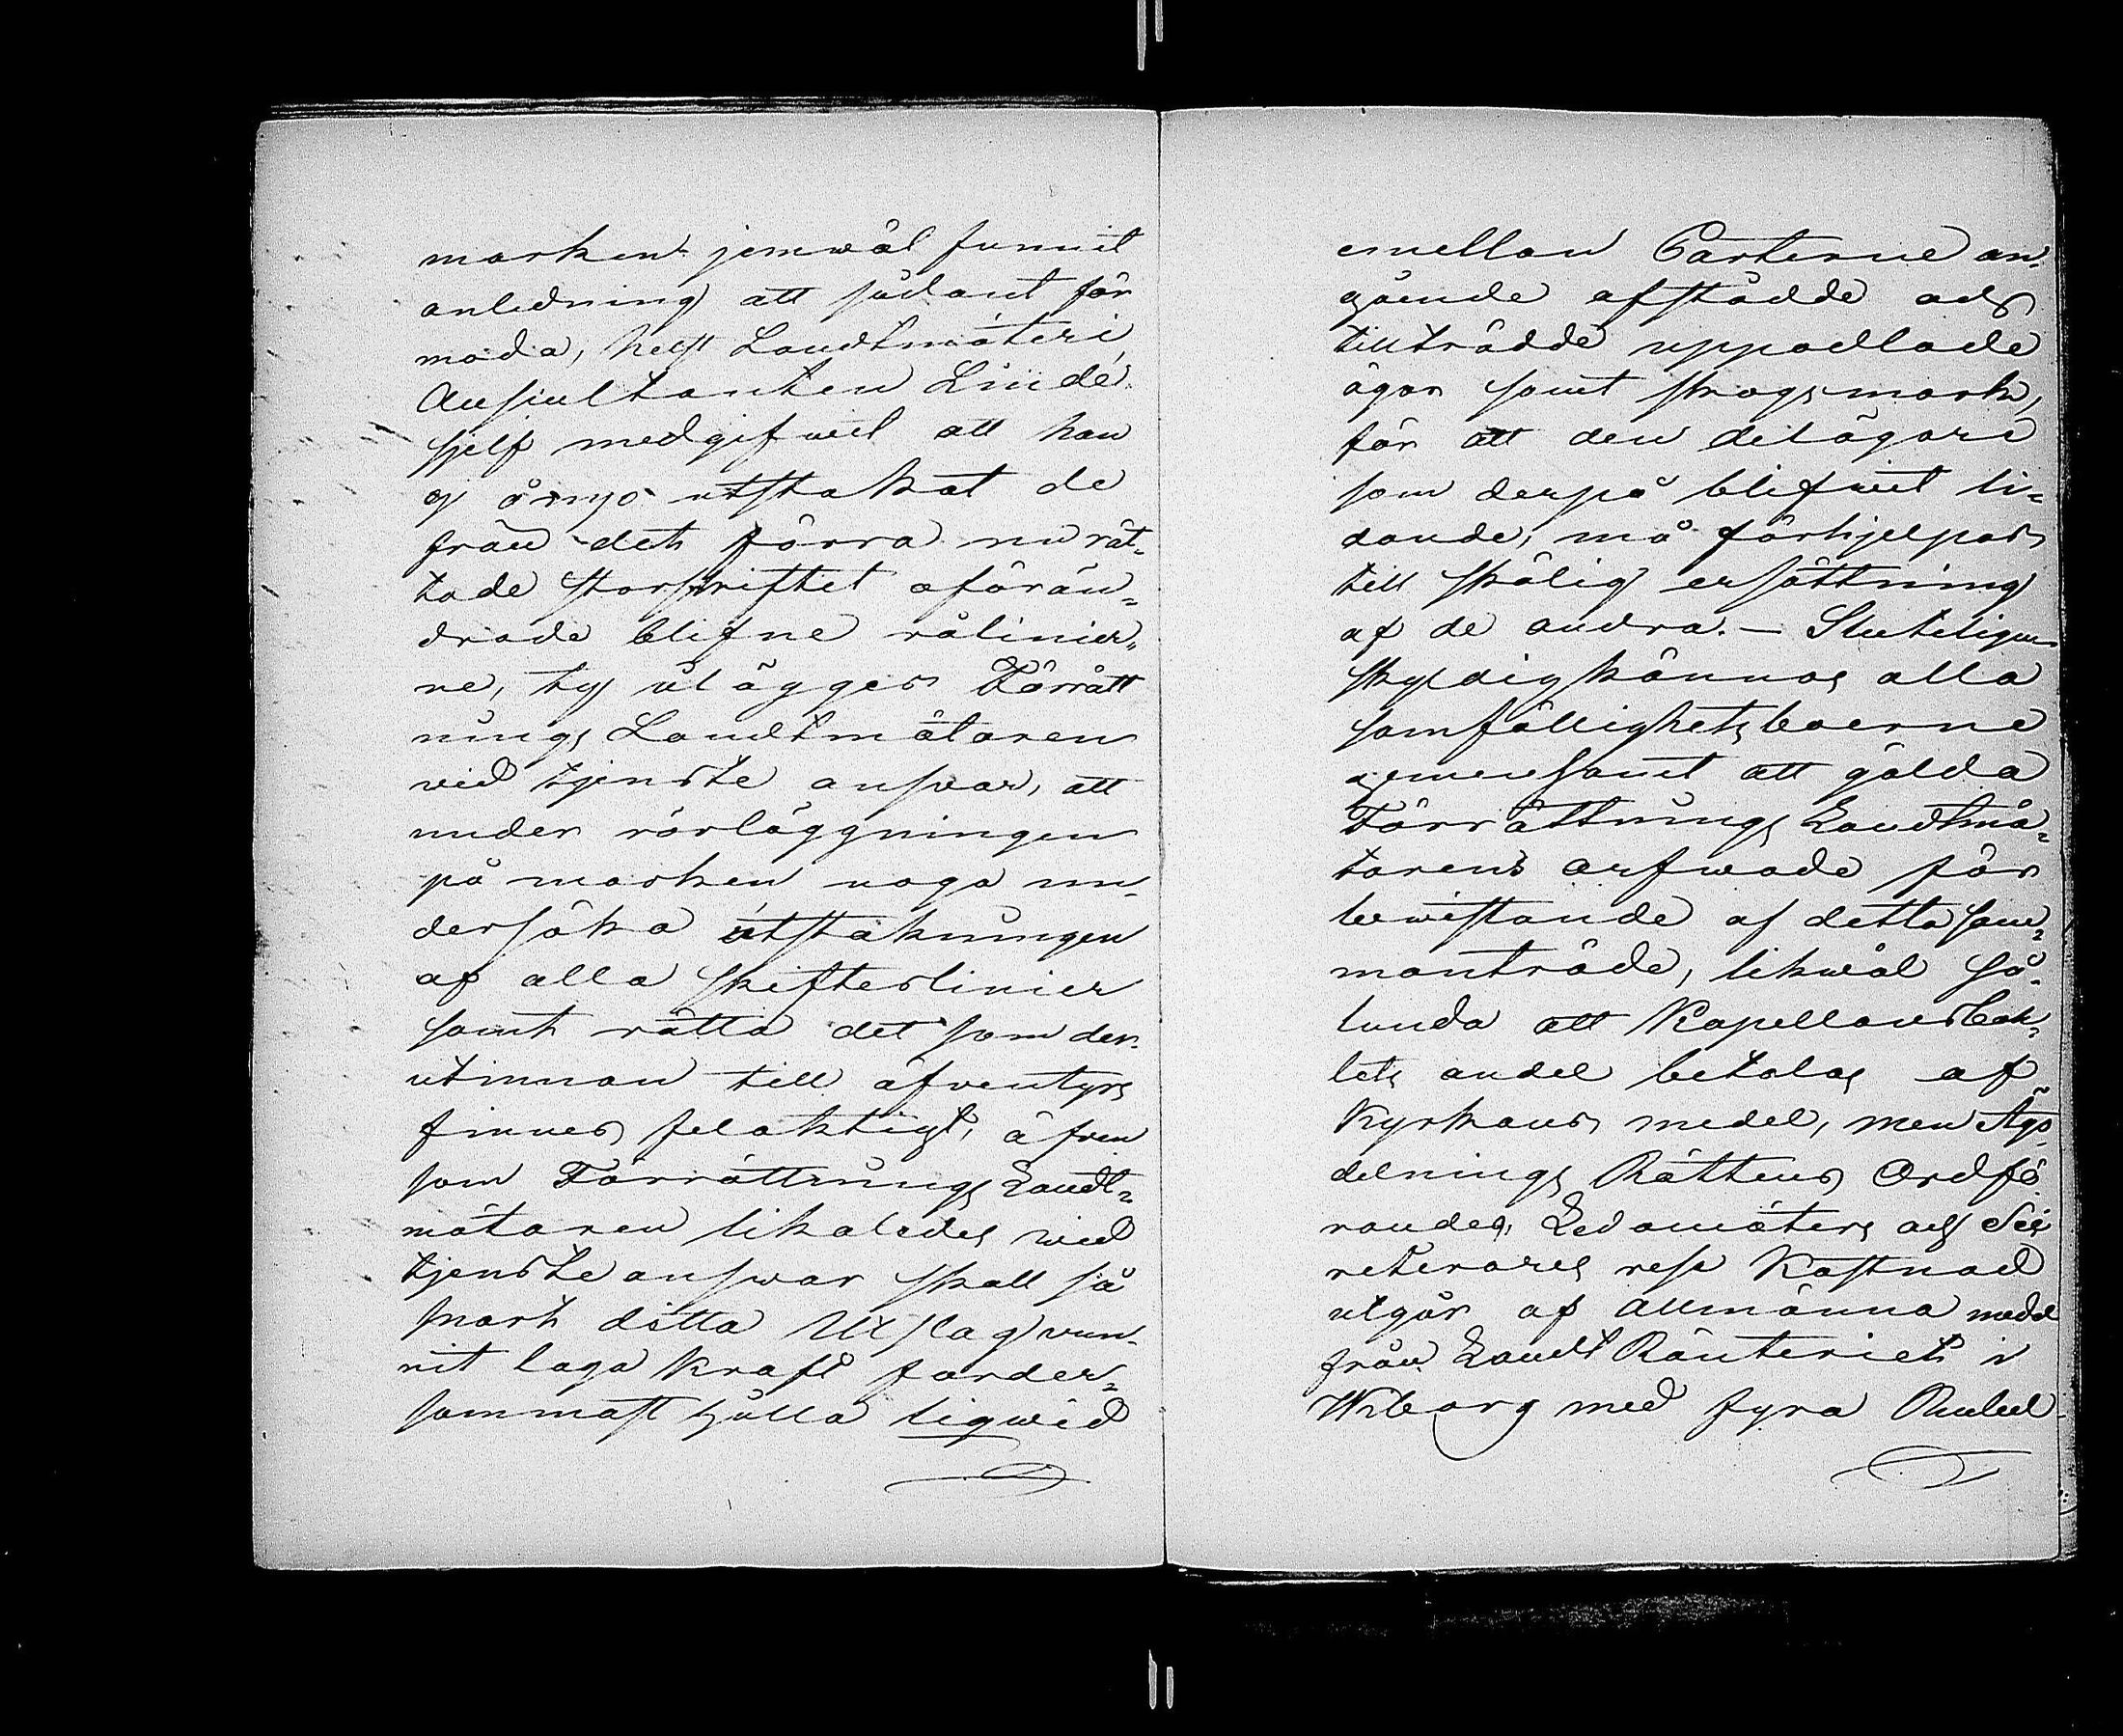 marken jemwäl funnit
anledning att sådant för
moda, helst Landtmäteri
Auscultanten Lindé
sjelf medgifwit att han
ej å nyo utstakat de
från det förra nu rät-
tade storskiftet oförän-
drade blifne rålinier-
ne, ty ålägges Förrätt
nings Landtmätaren
wid tjenste answar, att
under rörläggningen
på marken noga un-
dersöka utstakningen
af alla skifteslinier
samt rätta det som der-
utinnan till äfventyrs
finnes felaktigt, äfven
som Förrättnings Landt-
mätaren likaledes wid
tjensteanswar skall så
snart detta Utslag vun-
nit laga kraft forder-
sammast hålla liqwid
emellan Parterne an-
gående afträdde och
tillträdde uppodlade
ägor samt skogsmark,
för att den delägare
som derpå blifwit li-
dande, må förhjelpas
till skälig ersättning
af de andra. — Slutligen
skyldigkännas alla
samfällighetsboerne
gemensamt att gälda
Förrättnings Landtmä-
tarens arfwode för
bewistande af detta sam-
manträde, likwäl så-
lunda att Kapellansbol-
lets andel betalas af
Kyrkans medel, men Ägo
delnings Rättens Ordfö-
randes, Ledamöters och Sek
reterares rese kostnad
utgår af allmänna medel
från Landt Ränteriet i
Wiborg med fyra Rubel